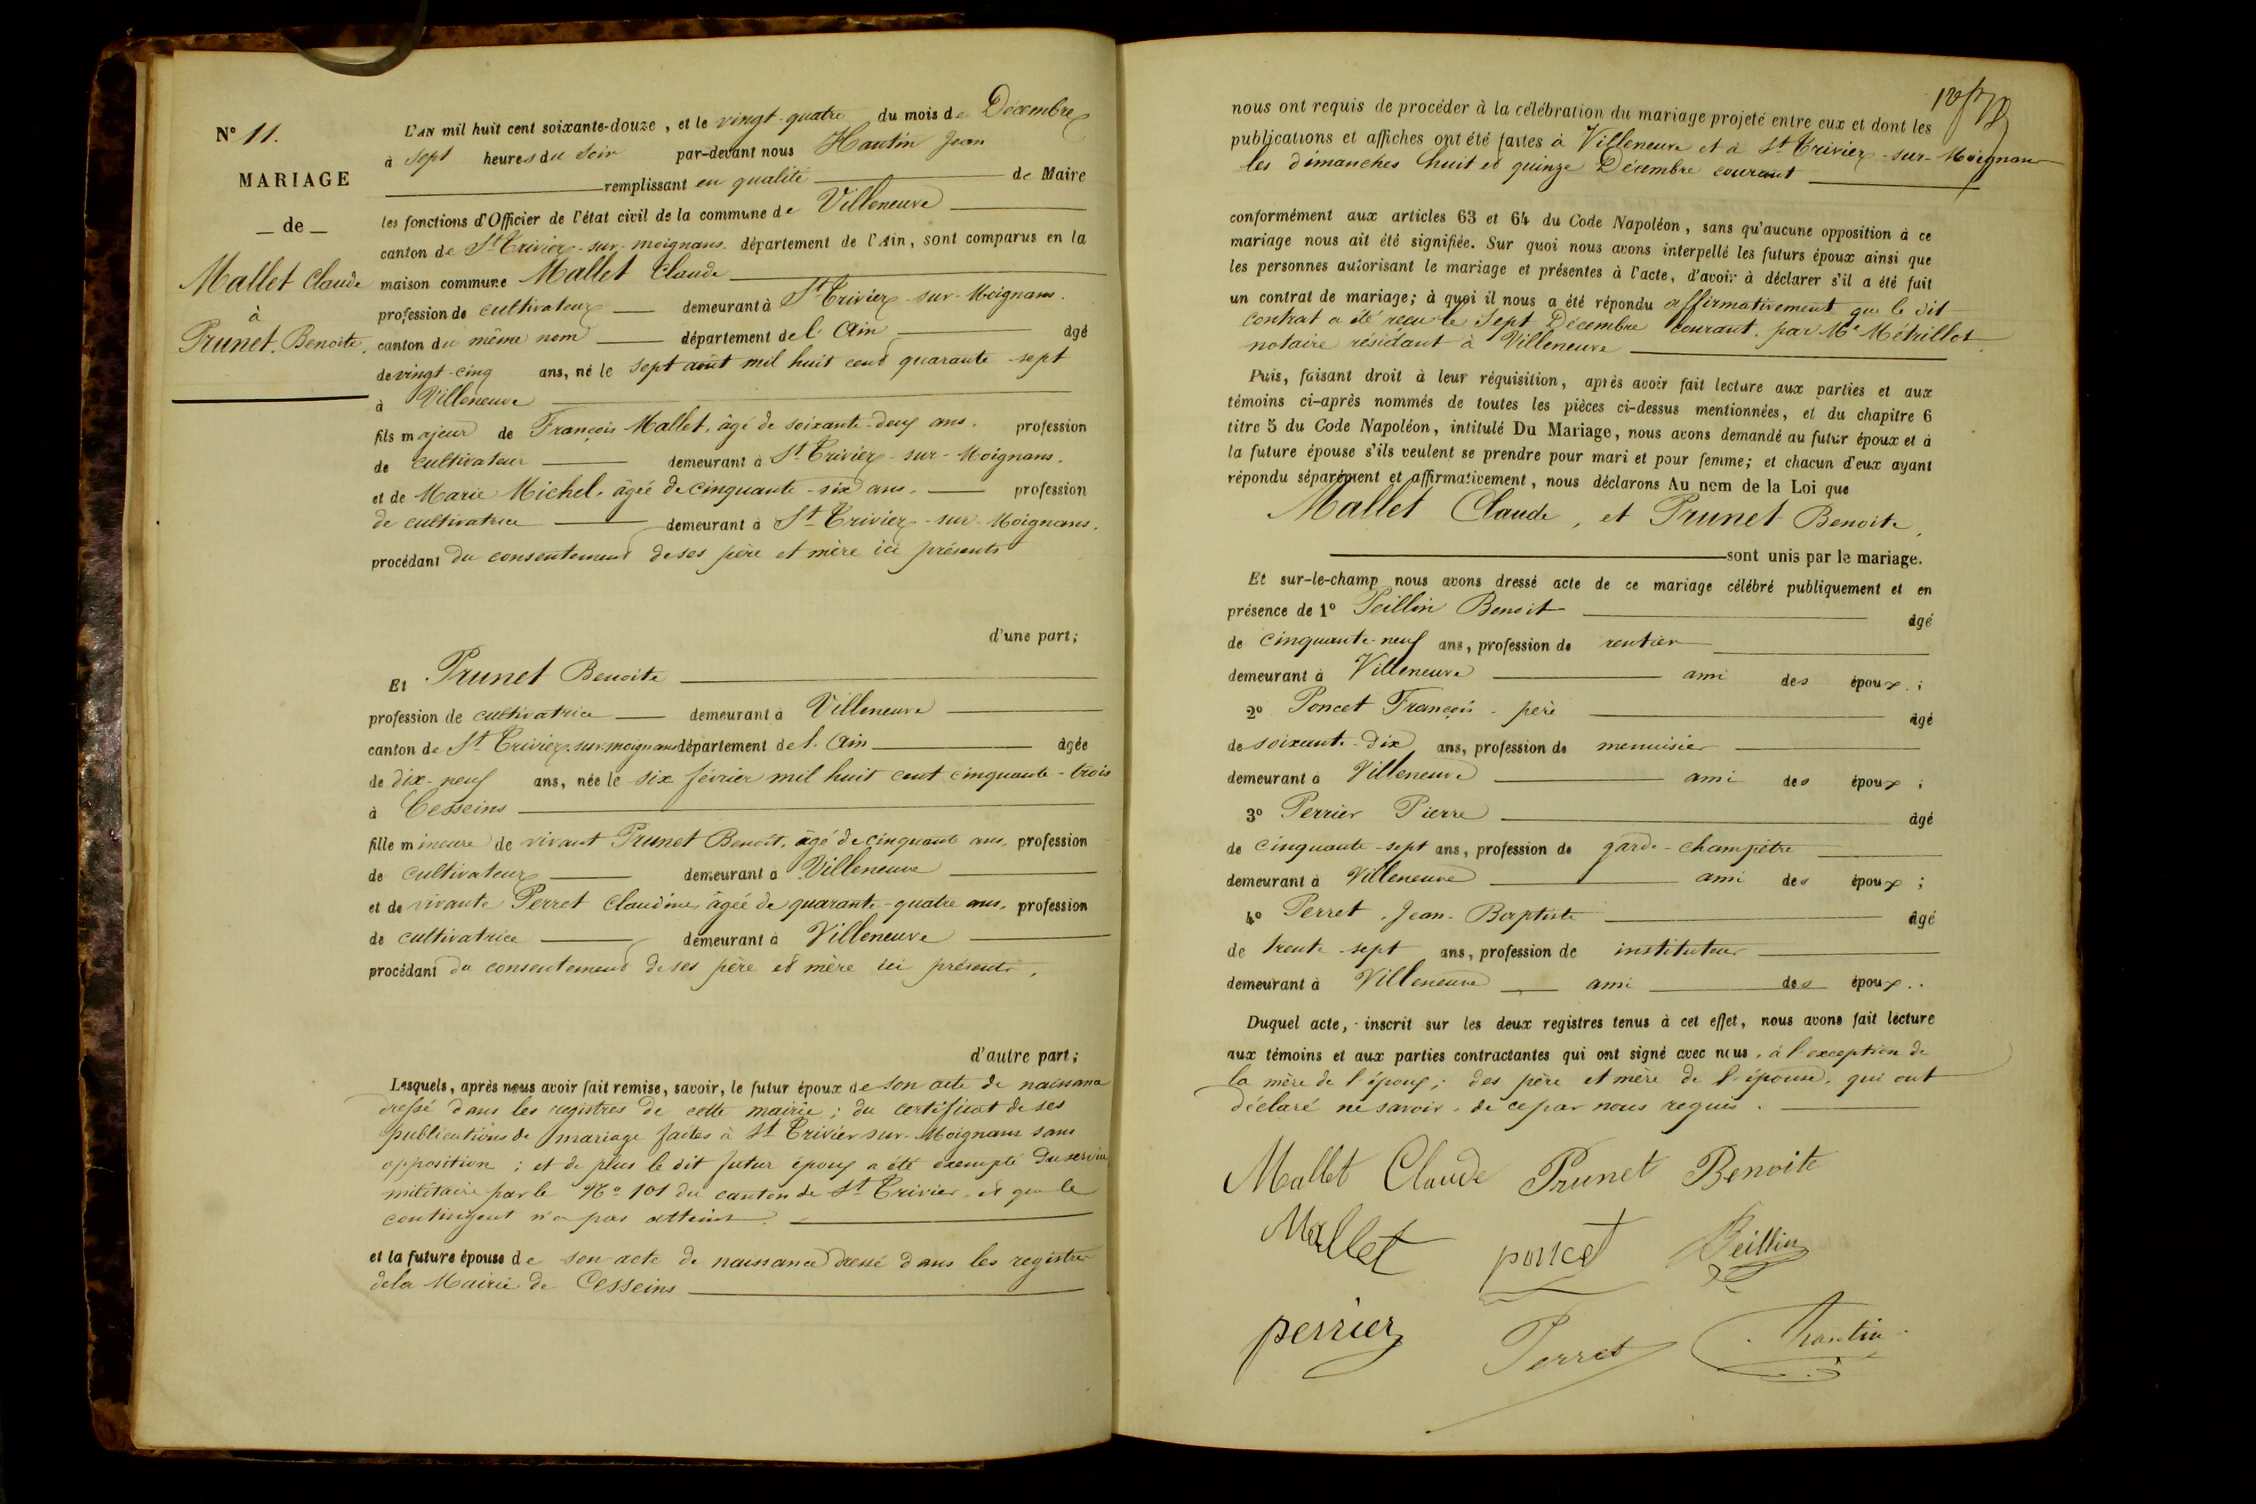 N° 11.
MARIAGE
de
Mallet Claude
à
Prunet Benoite.
L'AN mil huit cent soixante-douze, et le vingt-quatre du mois de Décembre
à sept heures du soir par-devant nous Hantin Jean
remplissant en qualité de Maire
les fonctions d'Officier de l'état civil de la commune de Villeneuve
canton de St Trivier-sur-moignans département de l'Ain, sont comparus en la
maison commune Mallet Claude
profession de cultivateur demeurant à St Trivier-sur-Moignans.
canton du même nom département de l'Ain âgé
de vingt-cinq ans, né le sept août mil huit cent quarante-sept
à Villeneuve
fils majeur de François Mallet, âgé de soixante-deux ans. profession
de cultivateur demeurant à St Trivier-sur-Moignans.
et de Marie Michel, âgée de cinquante-six ans. profession
de cultivatrice demeurant à St Trivier-sur-Moignans.
procédant du consentement de ses père et mère ici présents
d'une part;
Et Prunet Benoite
profession de cultivatrice demeurant à Villeneuve
canton de St Trivier-sur-moignans département de l'Ain âgée
de dix-neuf ans, née le six février mil huit cent cinquante-trois
à Cesseins
fille mineure de vivant Prunet Benoît, âgé de cinquante ans, profession
de cultivateur demeurant à Villeneuve
et de vivante Perret Claudine, âgée de quarante-quatre ans, profession
de cultivatrice demeurant à Villeneuve
procédant du consentement de ses père et mère ici présents.
d'autre part;
Lesquels, après nous avoir fait remise, savoir, le futur époux de son acte de naissance
dressé dans les registres de cette mairie; du certificat de ses
publications de mariage faites à St Trivier sur-Moignans sans
opposition; et de plus le dit futur époux a été exempté du service
militaire par le N° 101 du canton de St Trivier, et que le
contingent n'a pas atteint.
et la future épouse de son acte de naissance dressé dans les registres
de la Mairie de Cesseins
nous ont requis de procéder à la célébration du mariage projeté entre eux et dont les
publications et affiches ont été faites à Villeneuve et à St Trivier-sur-Moignans
les dimanches huit et quinze Décembre courant
conformément aux articles 63 et 64 du Code Napoléon, sans qu'aucune opposition à ce
mariage nous ait été signifiée. Sur quoi nous avons interpellé les futurs époux ainsi que
les personnes autorisant le mariage et présentes à l'acte, d'avoir à déclarer s'il a été fait
un contrat de mariage; à quoi il nous a été répondu affirmativement que le dit
contrat a été reçu le Sept Décembre courant, par Me Métrillot
notaire résidant à Villeneuve
Puis, faisant droit à leur réquisition, après avoir fait lecture aux parties et aux
témoins ci-après nommés de toutes les pièces ci-dessus mentionnées, et du chapitre 6
titre 5 du Code Napoléon, intitulé Du Mariage, nous avons demandé au futur époux et à
la future épouse s'ils veulent se prendre pour mari et pour femme; et chacun d'eux ayant
répondu séparément et affirmativement, nous déclarons Au nom de la Loi que
Mallet Claude, et Prunet Benoite,
sont unis par le mariage.
Et sur-le-champ nous avons dressé acte de ce mariage célébré publiquement et en
présence de 1° Peillin Benoit âgé
de cinquante-neuf ans, profession de rentier
demeurant à Villeneuve ami des époux;
2° Poncet François-père âgé
de soixante-dix ans, profession de menuisier
demeurant à Villeneuve ami des époux;
3° Perrier Pierre âgé
de cinquante-sept ans, profession de garde-champêtre
demeurant à Villeneuve ami des époux;
4° Perret Jean-Baptiste âgé
de trente-sept ans, profession de instituteur
demeurant à Villeneuve ami des époux.
Duquel acte, inscrit sur les deux registres tenus à cet effet, nous avons fait lecture
aux témoins et aux parties contractantes qui ont signé avec nous, à l'exception de
la mère de l'époux; des père et mère de l'épouse, qui ont
déclaré ne savoir, de ce par nous requis.
Mallet Claude Prunet Benoite
Mallet poncet Peillin
perrier Perret hantin